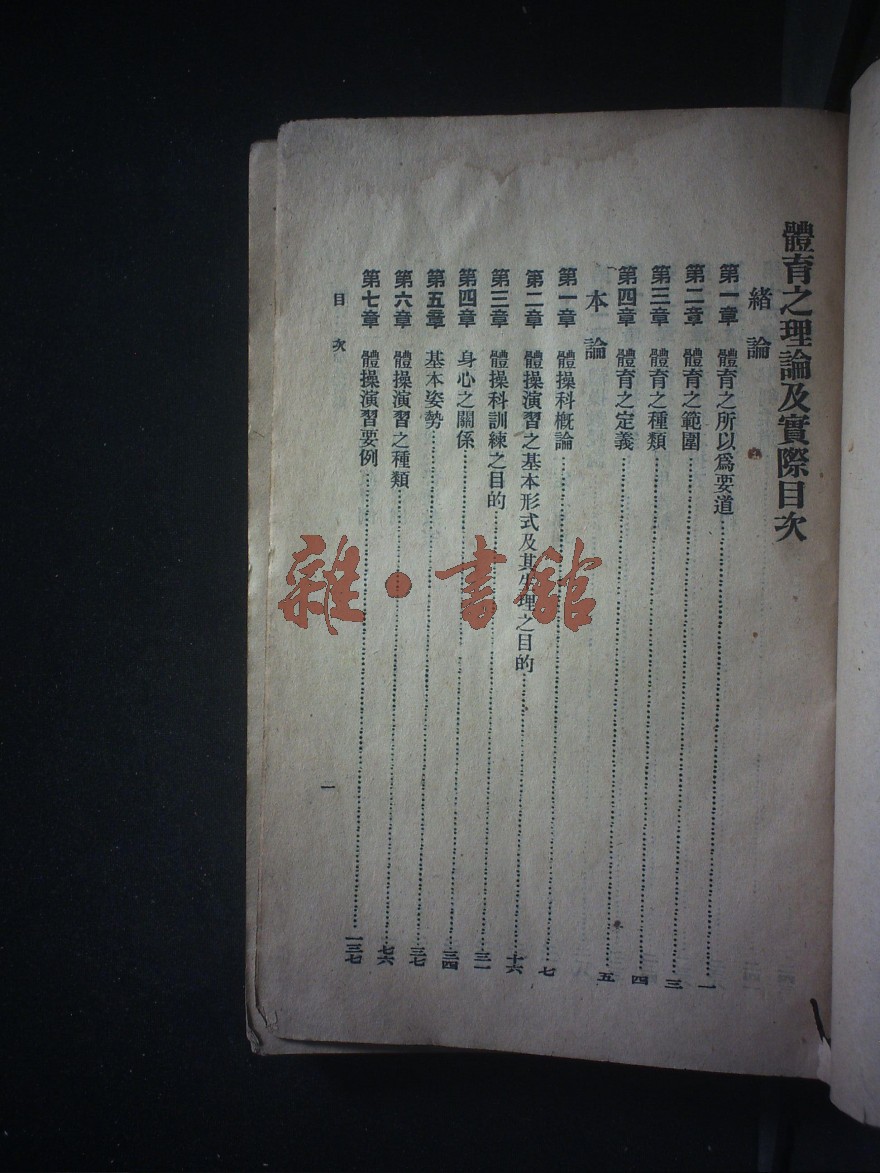 體育之理論及實際目次
緒論
第一章 體育之所以爲要道……一
第二章 體育之範圍……三
第三章 體育之種類……四
第四章 體育之定義……五
本論
第一章 體操科槪論……七
第二章 體操演習之基本形式及其生理之目的……十六
第三章 體操科訓練之目的……三一
第四章 身心之關係……三四
第五章 基本姿勢……三七
第六章 體操演習之種類……七六
第七章 體操演習要例……一三七
目次
一
雜·書館